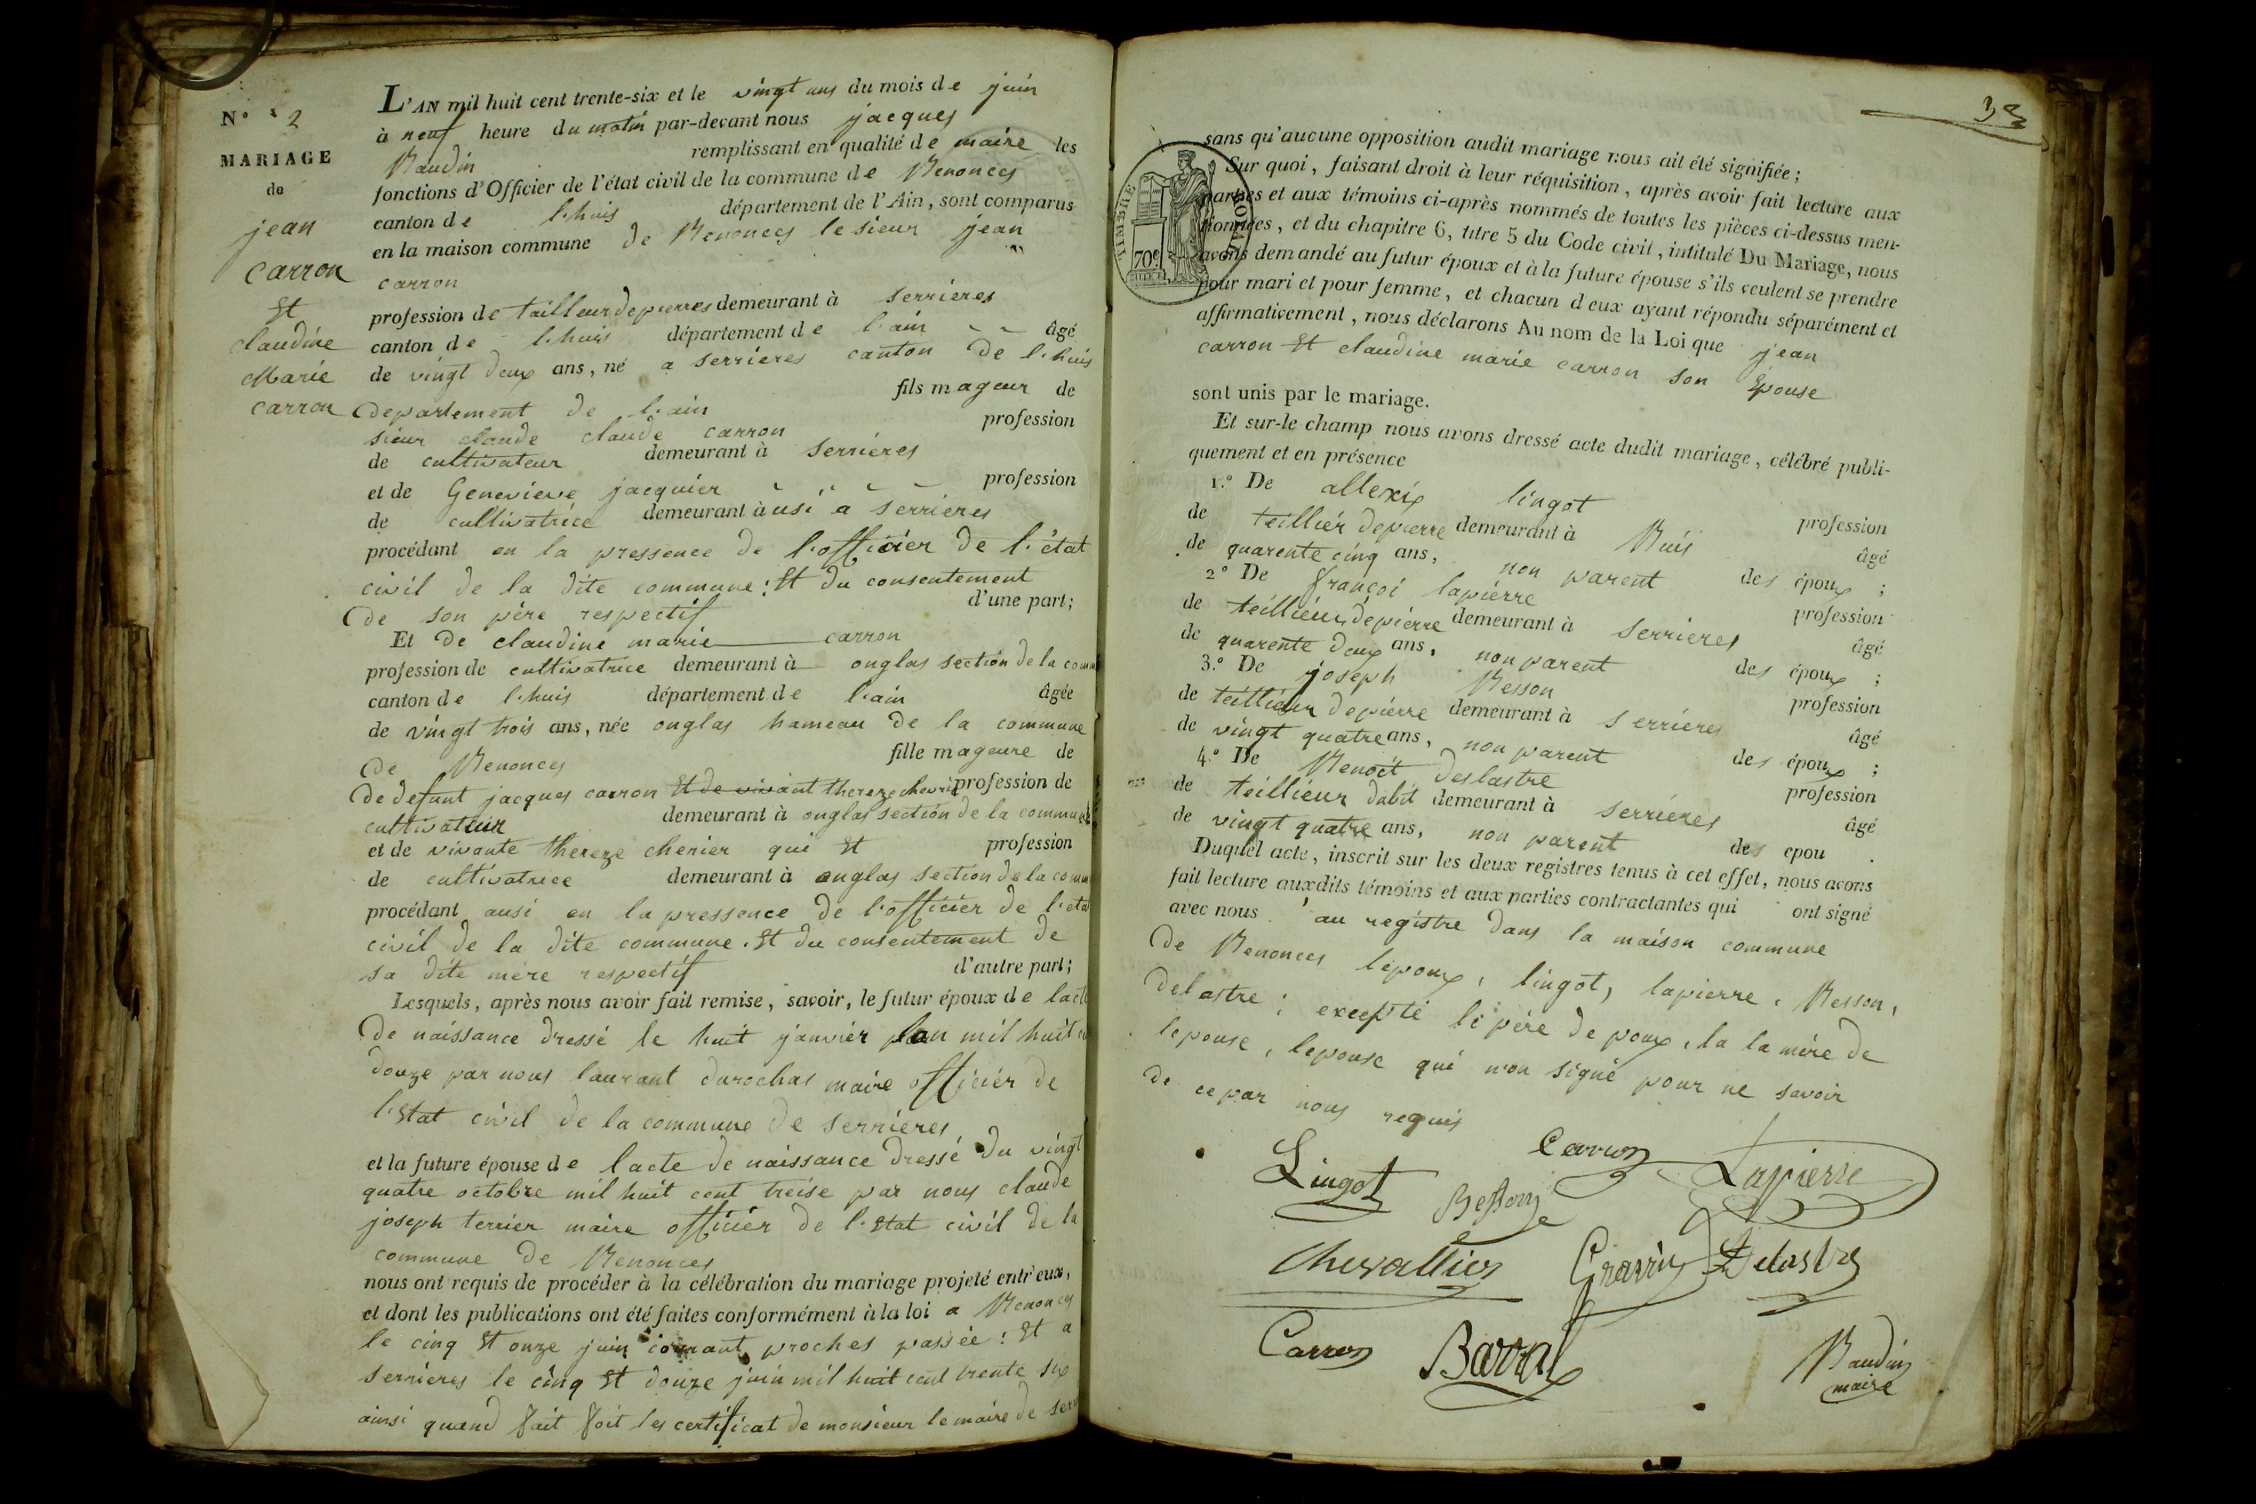 N° 2
MARIAGE
de
jean
carron
Et
claudine
Marie
carron
L'AN mil huit cent trente-six et le vingt uns du mois de juin
à neuf heure du matin par-devant nous jacques
Baudin remplissant en qualité de maire les
fonctions d'Officier de l'état civil de la commune de Benonces
canton de l.huis département de l'Ain, sont comparus
en la maison commune de Benonces le sieur jean
carron
profession de tailleur de pierres demeurant à serrieres
canton de l.huis département de l.ain âgé
de vingt deux ans, né a serrieres canton de l.huis
departement de l.ain fils mageur de
sieur claude claude carron profession
de cultivateur demeurant à serrieres
et de Genevieve jacquier profession
de cultivatrice demeurant à usi a serrieres
procédant en la pressence de l.officier de l.état
civil de la dite commune: Et du consentement
de son père respectif d'une part;
Et de claudine marie carron
profession de cultivatrice demeurant à onglas section de la comm
canton de l.huis département de l.ain âgée
de vingt trois ans, née onglas hameau de la commune
de Benonces fille mageure de
de defunt jacques carron Et de vivant thereze chevrier profession de
cultivateur demeurant à onglas section de la commune
et de vivante thereze cherier qui Et profession
de cultivatrice demeurant à onglas section de la comm
procédant ausi en la pressence de l.officier de l.eta
civil de la dite commune. Et du consentement de
sa dite mère respectif d'autre part;
Lesquels, après nous avoir fait remise, savoir, le futur époux de lacte
de naissance dressé le huit janvier lan mil huit c
douze par nous laurant durochas maire officier de
l.Etat civil de la commune de serrieres
et la future épouse de lacte de naissance dressé du vingt
quatre octobre mil huit cent treise par nous claude
joseph terrier maire officier de l.Etat civil de la
commune de Benonces
nous ont requis de procéder à la célébration du mariage projeté entr'eux,
et dont les publications ont été faites conformément à la loi a Benonces
le cinq Et onze juin courant proches passée: Et a
serrieres le cinq Et douze juin mil huit cent trente six
ainsi quand fait foit les certificat de monsieur le maire de serr
33
TIMBRE ROYAL
70c
sans qu'aucune opposition audit mariage nous ait été signifiée;
Sur quoi, faisant droit à leur réquisition, après avoir fait lecture aux
parties et aux témoins ci-après nommés de toutes les pièces ci-dessus men-
tionnées, et du chapitre 6, titre 5 du Code civil, intitulé Du Mariage, nous
avons demandé au futur époux et à la future épouse s'ils veulent se prendre
pour mari et pour femme, et chacun d'eux ayant répondu séparément et
affirmativement, nous déclarons Au nom de la Loi que jean
carron Et claudine marie carron son Epouse
sont unis par le mariage.
Et sur-le champ nous avons dressé acte dudit mariage, célébré publi-
quement et en présence
1.° De allexis lingot profession
de teillier de pierre demeurant à Buis âgé
de quarente cinq ans, non parent des époux;
2° De françoi lapierre profession
de teillieur de pierre demeurant à serrieres âgé
de quarente deux ans, non parent des époux;
3.° De joseph Besson profession
de teillieur de pierre demeurant à serrieres âgé
de vingt quatre ans, non parent des époux;
4.° De Benoêt deslastre profession
de teillieur dabit demeurant à serrieres âgé
de vingt quatre ans, non parent des epou.
Duquel acte, inscrit sur les deux registres tenus à cet effet, nous avons
fait lecture auxdits témoins et aux parties contractantes qui ont signé
avec nous au registre dans la maison commune
de Benonces lepoux, lingot, lapierre, Besson,
delastre; excepté le père de poux, la la mère de
lepouse, lepouse qui n'on signé pour ne savoir
de ce par nous requis
Lingot Carron Lapierre
Besson
Chevallier Gravin Delastre
Carron Barral Baudin
maire